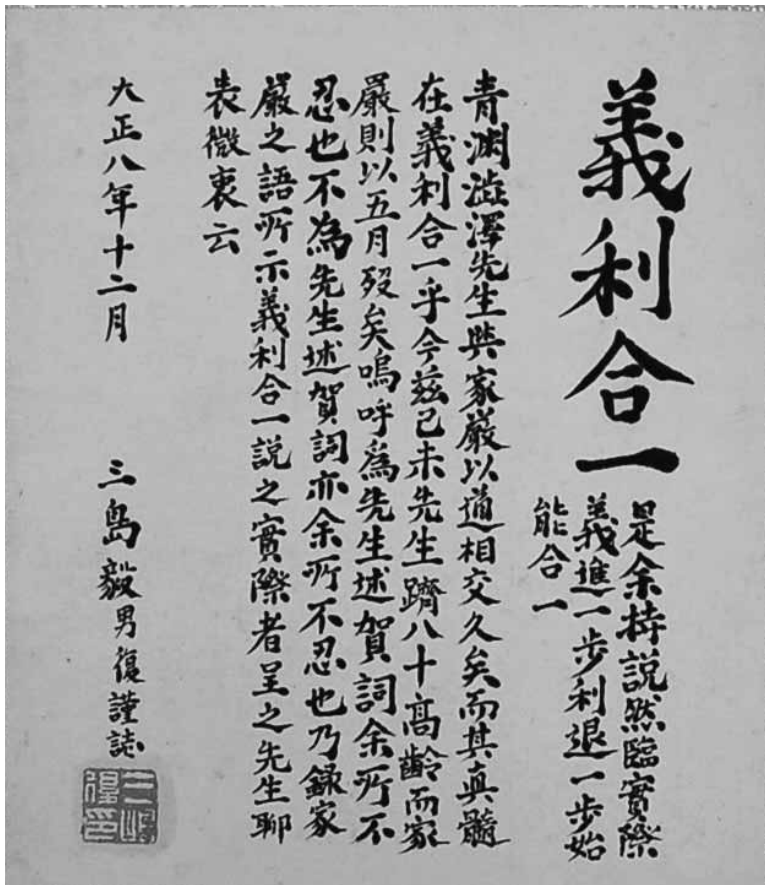 義利合一
是余持説然臨實際
義進一步利退一步始
能合一
青渊澁澤先生與家嚴以道相交久矣而其真髓
在義利合一乎今茲己未先生躋八十高齡而家
嚴則以五月歿矣嗚呼爲先生述賀詞余所不
忍也不為先生述賀詞亦余所不忍也乃録家
嚴之語所示義利合一説之實際者呈之先生聊
表微衷云
大正八年十二月
三島毅男復謹誌
三島復印